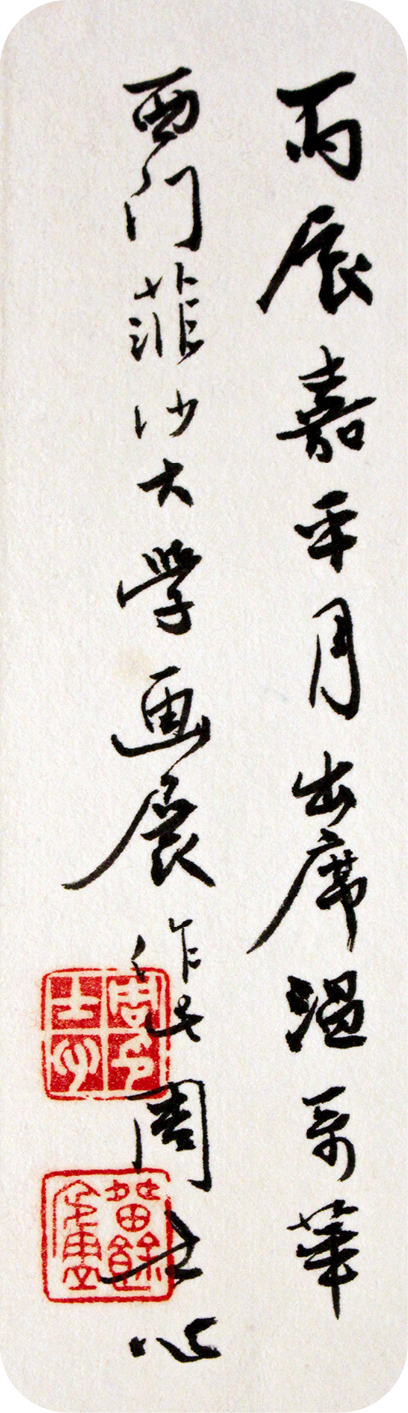 丙辰嘉平月出席温哥華
西门菲沙大学画展作此周士心
周士心